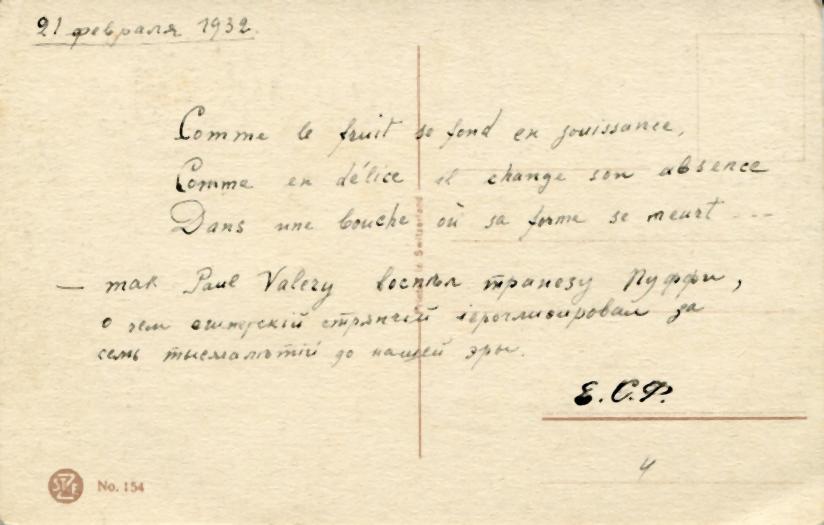 21 февраля 1932.
Comme le fruit se fond en jouissance,
Comme en délice il change son absence
Dans une bouche où sa forme se meurt ---
— так Paul Valery воспѣл трапезу Пуффи,
о чем египетскій стряпчій іероглифировал за
семь тысячалѣтій до нашей эры.
Е.С.Ф.
4
No. 154